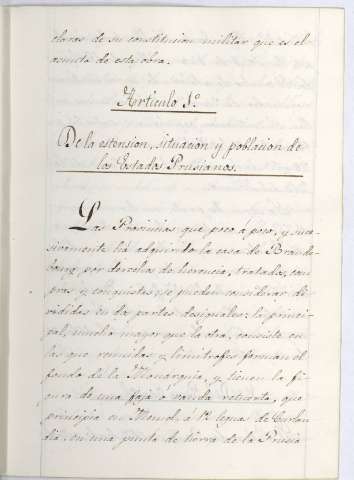 claros de su constitucion militar que es el
asunto de esta obra.
Artículo 1º
De la estension, situación y poblacion de
los Estados Prusianos.
Las Provincias que poco á poco, y suce-
sivamente ha adquirido la casa de Brande-
bourg por derechos de herencia, tratados, com
pras y conquistas, se pueden considerar di-
vididas en dos partes desiguales: la princi-
pal, mucho mayor que la otra, consiste en
las que reunidas y limitrofes forman el
fondo de la Monarquía, y tienen la fi-
gura de una faja ó banda retuerta, que
principia en Memel, á 1ª legua de Curlan
dia, en una punta de tierra de la Prusia